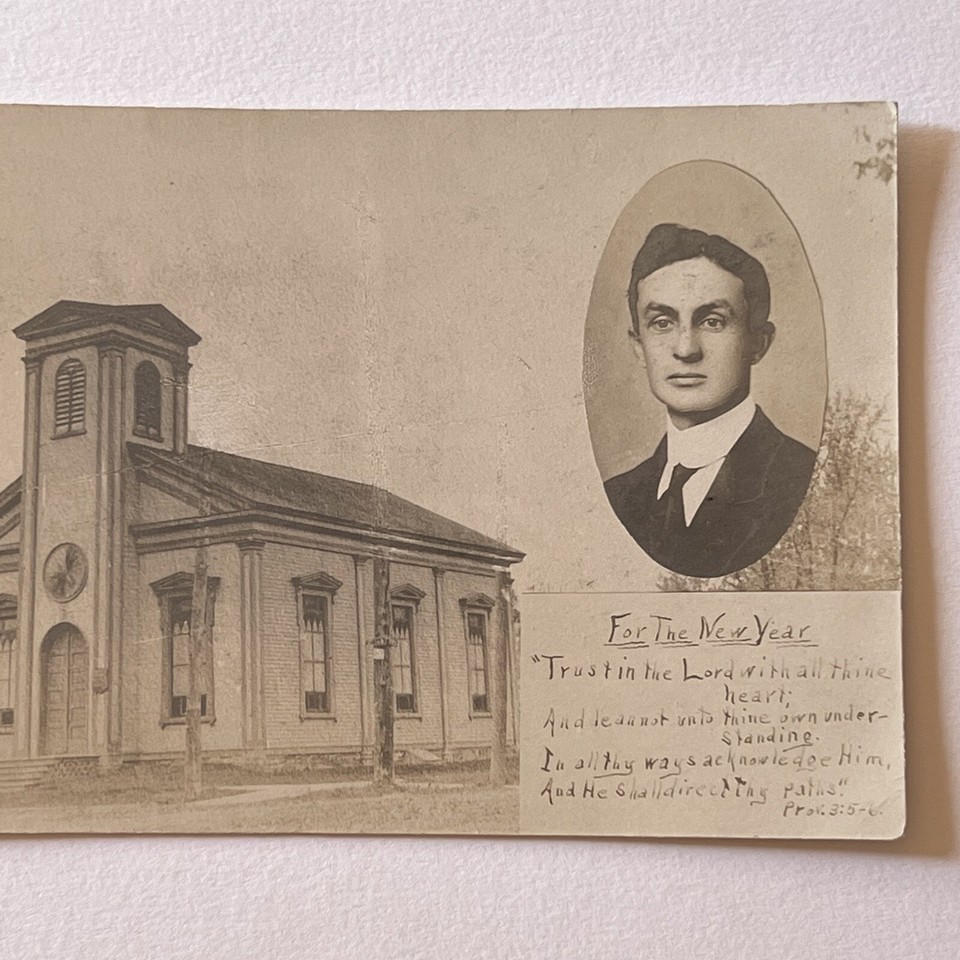 For The New Year
"Trust in the Lord with all thine
heart;
And lean not unto thine own under-
standing.
In all thy ways acknowledge Him,
And He shall direct thy paths."
Prov. 3:5-6.